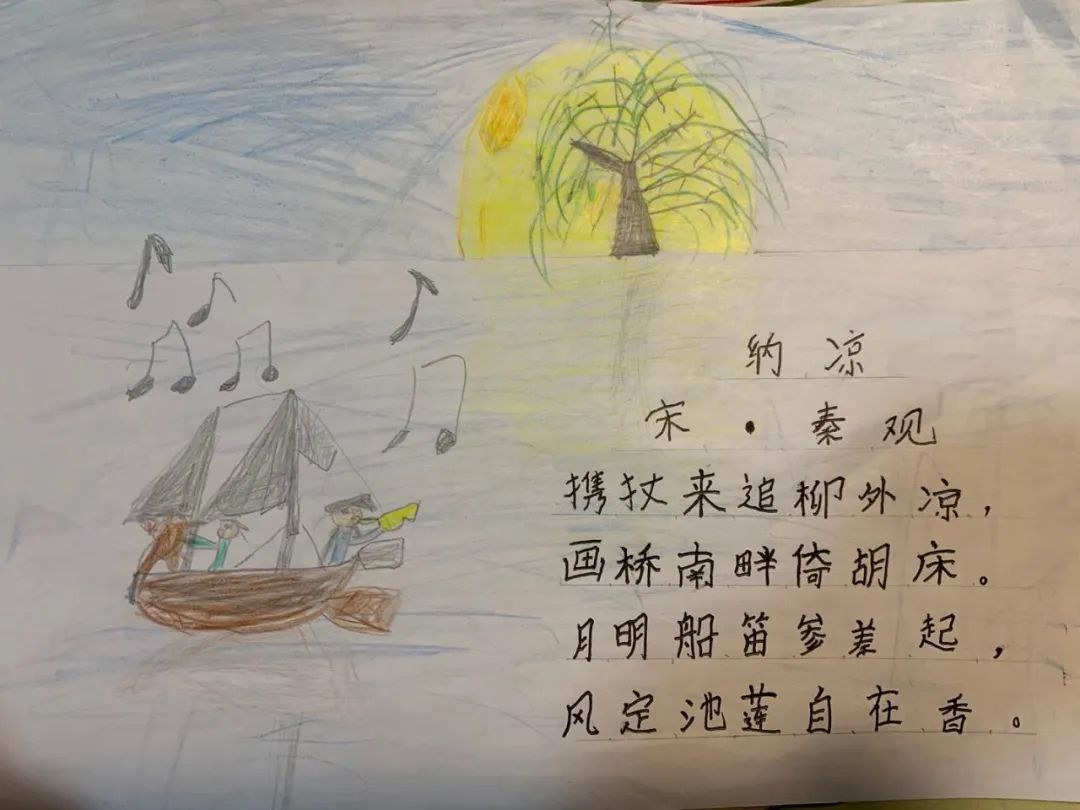 纳凉
宋·秦观
携扙来追柳外凉，
画桥南畔倚胡床。
月明船笛参差起，
风定池莲自在香。